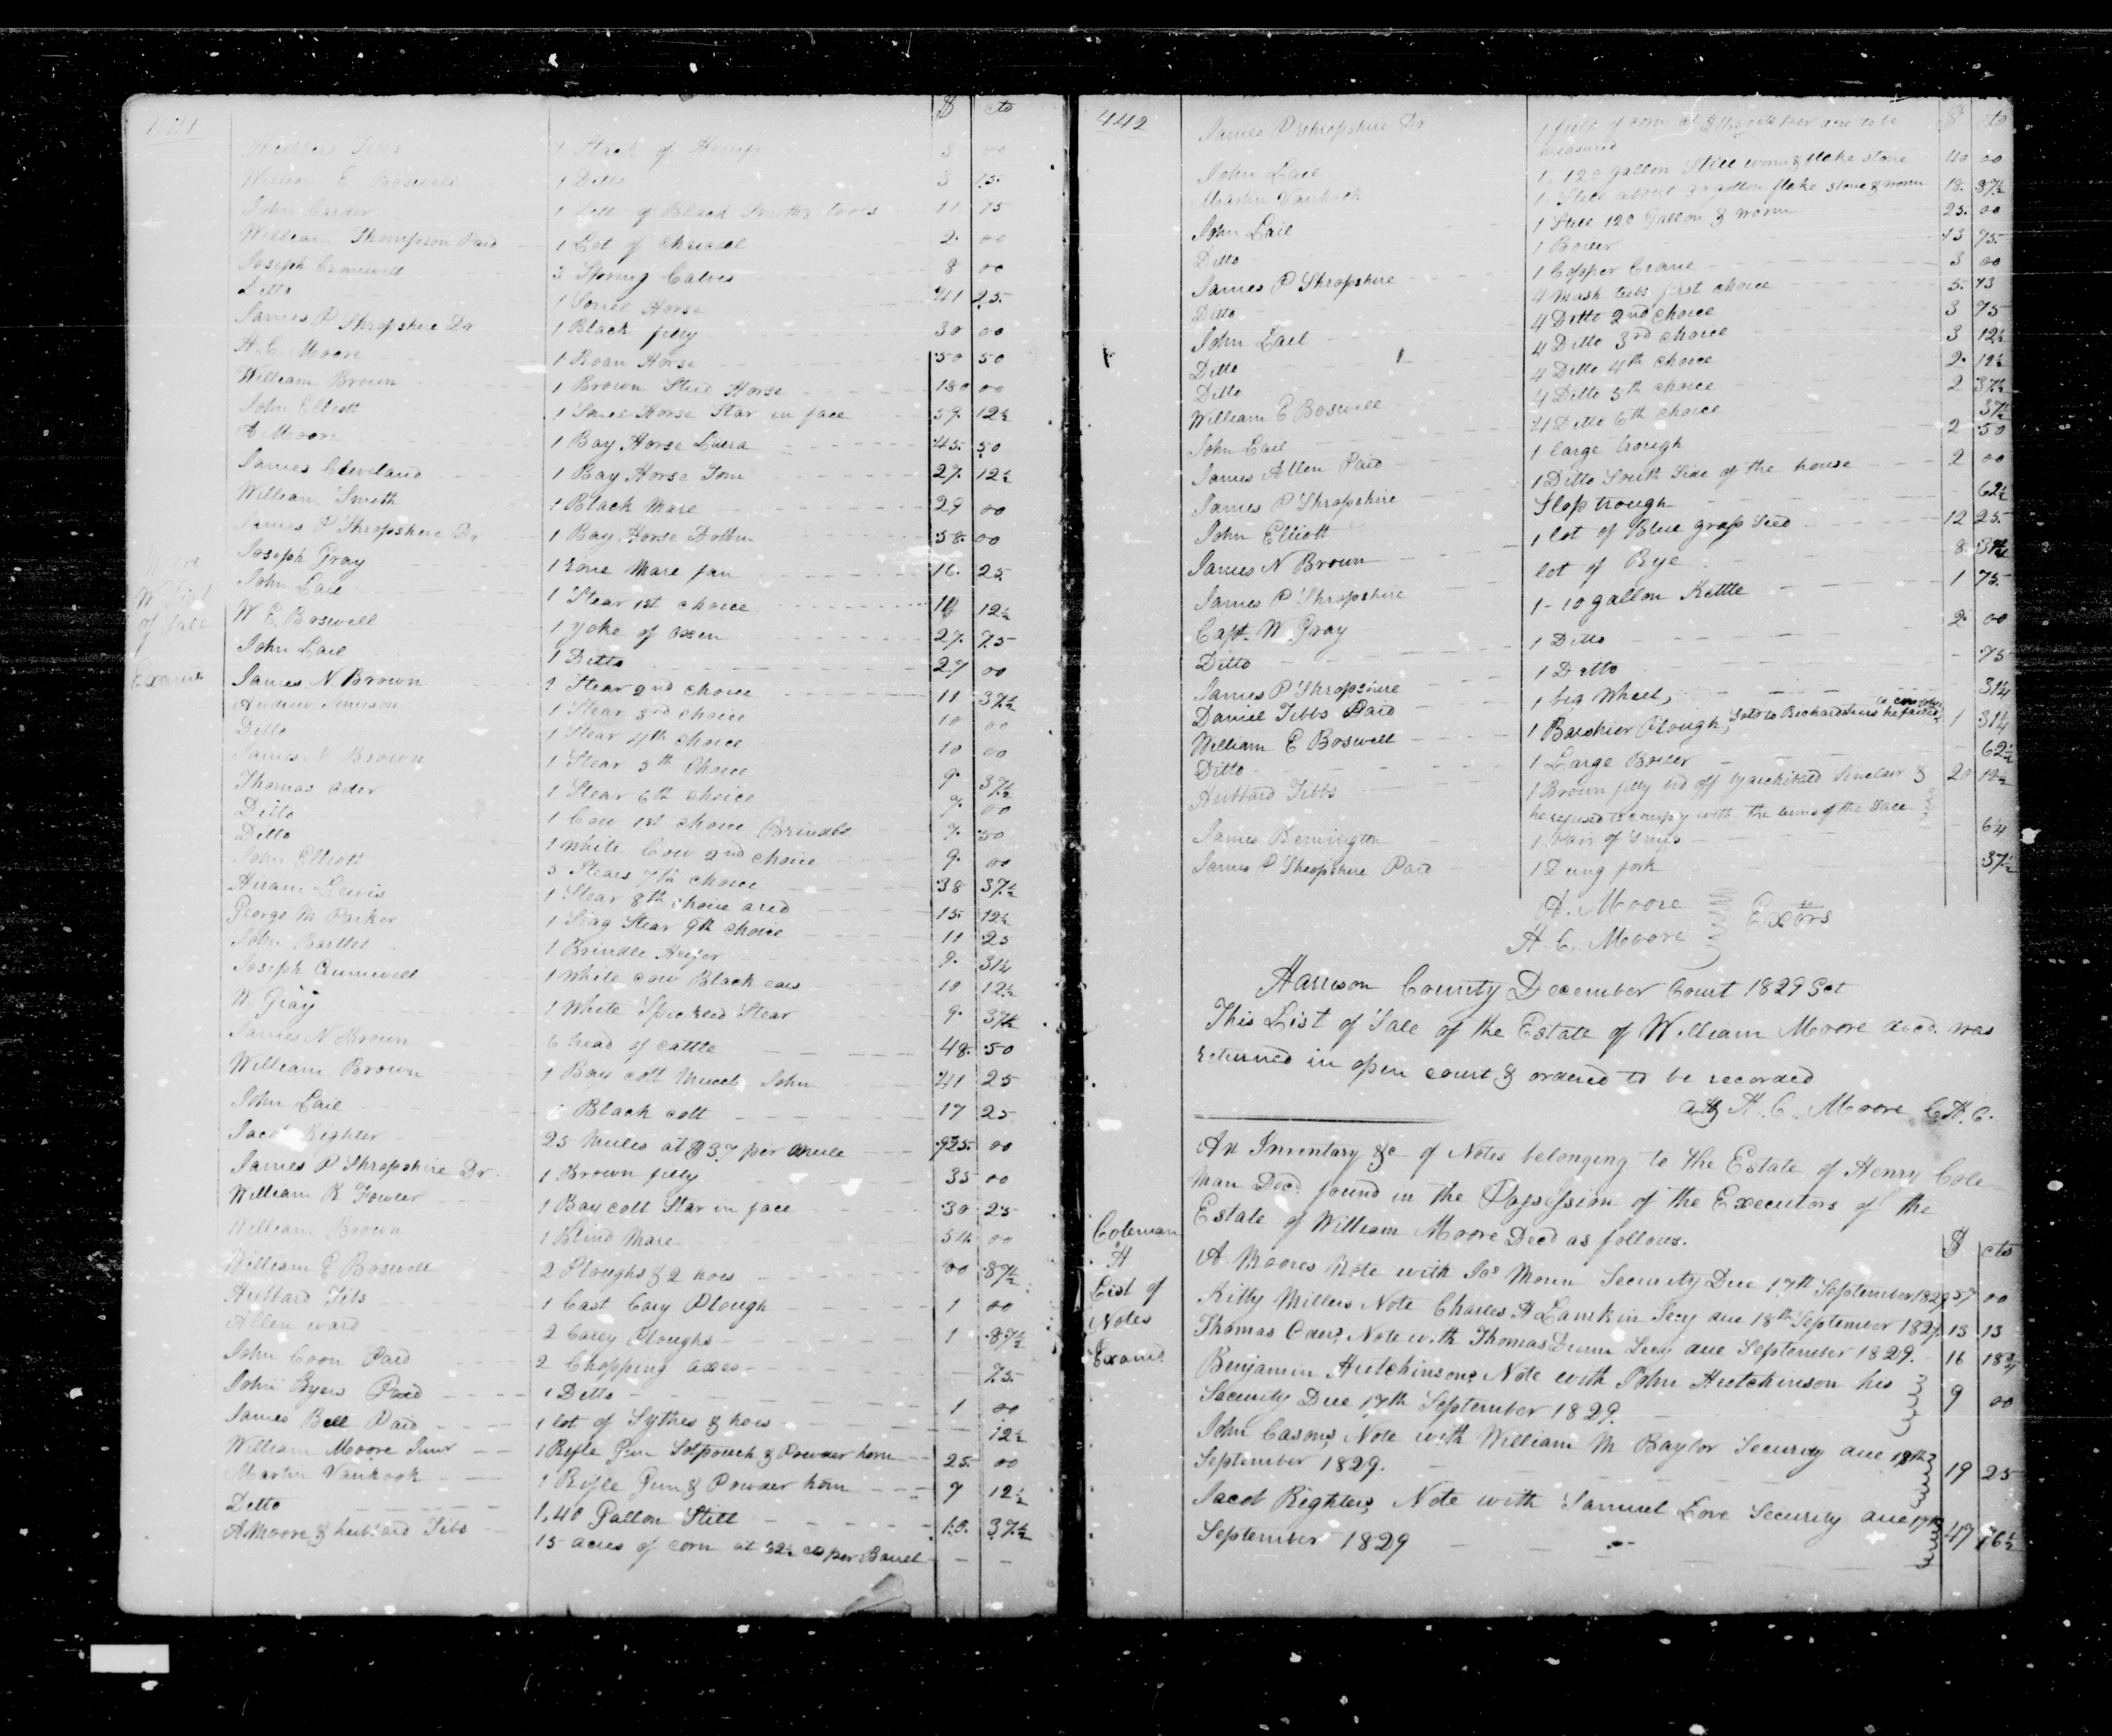 441
$ cts
Hubbard Tibbs 1 Stack of Hemp 3 00
William E Boswell 1 Ditto 3 75
John Carder 1 Sett of Black Smiths tools 11 75
William Thompson Paid 1 Lot of charcoal 2. 00
Joseph Cromwell 3 Spring Calves 8 00
Ditto 1 Sorrel Horse 41 25
James P Shropshire Dr 1 Black filly 30 00
H. C. Moore 1 Roan Horse 50 50
William Brown 1 Brown Stud Horse 180 00
John Elliott 1 Sorrel Horse Star in face 59. 12½
A Moore 1 Bay Horse 45. 50
James Cleveland 1 Bay Horse Tom 27. 12½
William Smith 1 Black Mare 29 00
James P Shropshire Dr 1 Bay Horse 58. 00
Joseph Gray 1 Mare fan 16. 25
John Lail 1 Stear 1st choice 12½
W. E. Boswell 1 yoke of oxen 27. 75
John Lail 1 Ditto 27 00
James N. Brown 1 Stear 2nd choice 11 37½
Andrew 1 Stear 3rd choice 10 00
Ditto 1 Stear 4th choice 10 00
James N Brown 1 Stear 5th Choice 9. 37½
Thomas Oder 1 Stear 6th choice 9. 00
Ditto 1 Cow 1st choice 7. 50
Ditto 1 White Cow 2nd choice 9. 00
John Elliott 5 Stears 7th choice 38 37½
Hiram Lewis 1 Stear 8th choice a red 15. 12½
George M Parker 1 Stag Stear 9th choice 11 25
John Bartlet 1 Brindle Heifer 9. 31¼
Joseph 1 White cow Black ears 10 12½
W. Gray 1 White Speckled Stear 9. 37½
James N Brown 6 head of cattle 48. 50
William Brown 1 Bay colt John 41 25
John Lail 1 Black colt 17 25
Jacob Righter 25 Mules at $37 per Mule 925. 00
James P Shropshire Dr. 1 Brown filly 35 00
William K Fowler 1 Bay colt Star in face 30 25
William Brown 1 Blind Mare 54 00
William E Boswell 2 Ploughs & 2 hoes 00 87½
Hubbard Tibs 1 Cast Cary Plough 1 00
Allen ward 2 Carey Ploughs 1 87½
John Coon Paid 2 Chopping axes 75
John Byers Paid 1 Ditto 1 00
James Bell Paid 1 lot of Sythes & hoes 12½
William Moore Junr 1 Rifle Gun Sotpouch & Powder horn 25. 00
Martin Vanhook 1 Rifle Gun & Powder horn 9 12½
Ditto 1, 40 Gallon Still 37½
A Moore & hubbard Tibs 15 acres of corn at 62½ cts per Barrel
Moore
W List
of Sale
Examd
442
$ cts
James P Shropshire Dr 1 field of corn at per acre to be
measured
John Lail 1, 120 gallon Still worm & flake stone 40 00
Martin Vanhook 1 Still about gallon flake stone & worm 18. 37½
John Lail 1 Still 120 Gallon & worm 25. 00
Ditto 1 Boiler 13 75
James P Shropshire 1 Copper Crane 3 00
Ditto 4 Mash tubs first choice 5. 73
John Lail 4 Ditto 2nd choice 3 75
Ditto 4 Ditto 3rd choice 3 12½
Ditto 4 Ditto 4th choice 2. 12½
William E Boswell 4 Ditto 5th choice 2 37½
John Lail 4 Ditto 6th choice 37½
James Allen Paid 1 large trough 2 50
James P Shropshire 1 Ditto South Side of the house 2 00
John Elliott Slop trough 62½
James N Brown 1 lot of Blue grass Seed 12 25
James P Shropshire lot of Rye 8 37½
Capt. W. Gray 1-10 gallon Kettle 1 75
Ditto 1 Ditto 2. 00
James P Shropshire 1 Ditto 75
Daniel Tibbs Paid 1 big Wheel, 31¼
William E Boswell 1 Barshier Plough, 1 31¼
Ditto 1 Large Boiler 62½
Hubbard Tibbs 1 Brown filly bid off by archibald Sinclair & 20 12½
he refused to comply with the terms of the Sale
James Bennington 1 Pair of 6¼
James P Shropshire Paid 1 Dung fork 37½
A. Moore
H C. Moore Exors
Harrison County December Court 1829 Sct
This List of Sale of the Estate of William Moore decd. was
returned in open court & ordered to be recorded
H. C. Moore C. H. C.
An Inventary &c of Notes belonging to the Estate of Henry Cole
man Decd. found in the Possession of the Executors of the
Estate of William Moore Decd as follows.
Coleman
H
List of
Notes
Examd
$ cts
A Moores Note with Jos Security Due 17th September 1829 57 00
Kitty Millers Note Charles H Lamkin Secy due 18th September 1829. 13 13
Thomas Oders Note with Thomas Dunn Secy due September 1829. 16 18¾
Benjamin Hutchinsons Note with John Hutchinson his
Security Due 17th September 1829. 9 00
John Casons Note with William M Baylor Security due 18th
September 1829. 19 25
Jacob Righters Note with Samuel Love Security due 17th
September 1829 47 76½